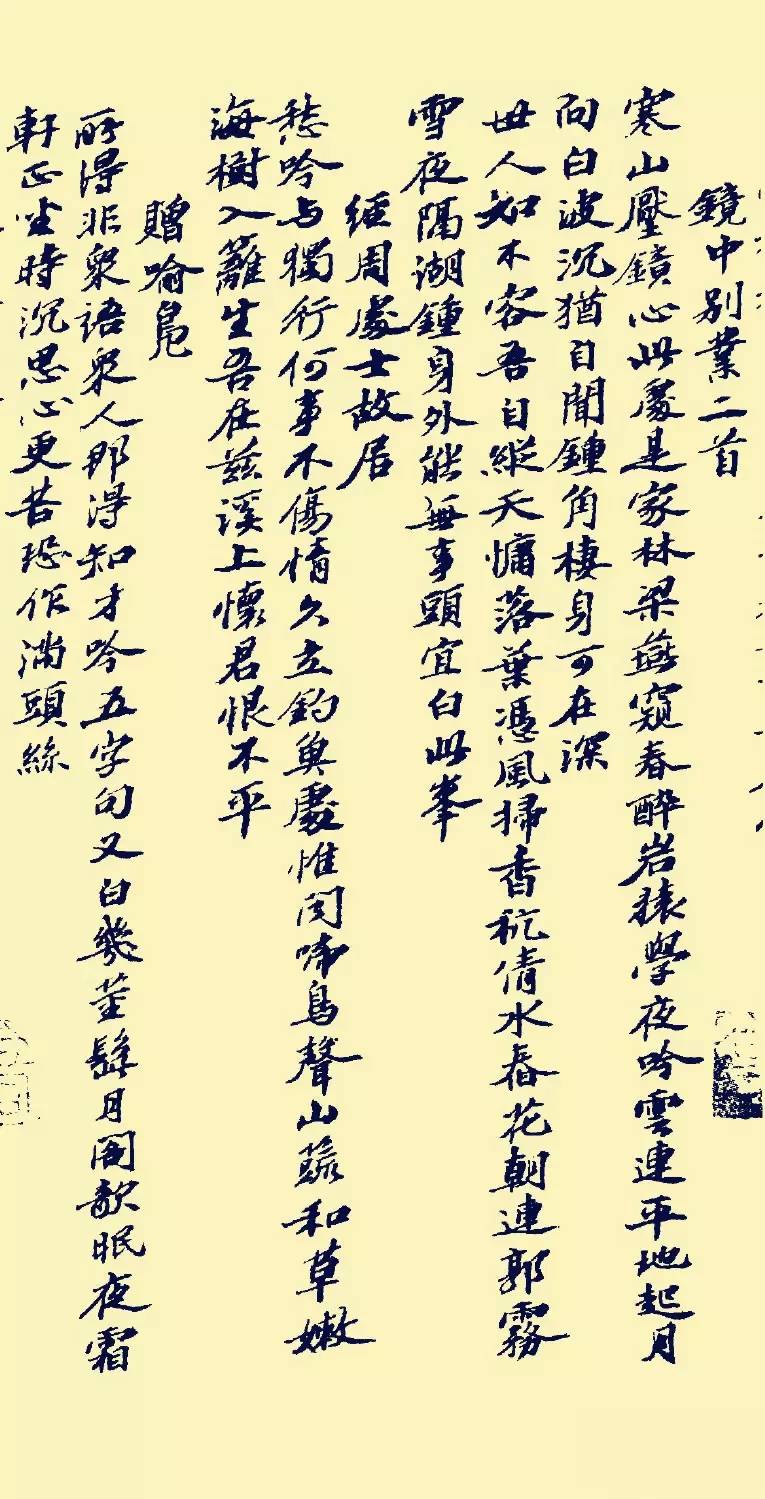 鏡中别業二首
寒山壓鏡心此處是家林梁燕窺春醉岩猿學夜吟雲連平地起月
向白波沉猶自聞鍾角棲身可在深
世人如不容吾自縱天慵落葉憑風掃香秔倩水舂花朝連郭霧
雪夜隔湖鍾身外能無事頭宜白此峯
經周處士故居
愁吟与獨行何事不傷情久立釣魚處惟聞啼鳥聲山蔬和草嫩
海樹入籬生吾在兹溪上懷君恨不平
贈喻鳧
所得非衆語衆人那得知才吟五字句又白幾莖髭月閣欹眠夜霜
軒正坐時沉思心更苦恐作滿頭絲